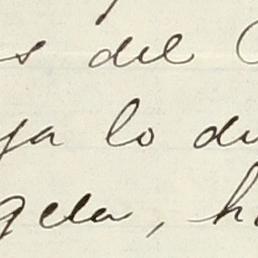 s del
ya lo di
gela, h